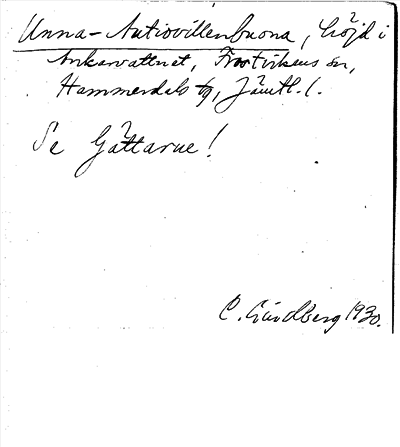 Unna-Autiovillenbuona, höjd i
Ankarvattnet, Frostvikens sn,
Hammerdals tg, Jämtl. l.
Se Gåttarue!
C. Lindberg 1930.